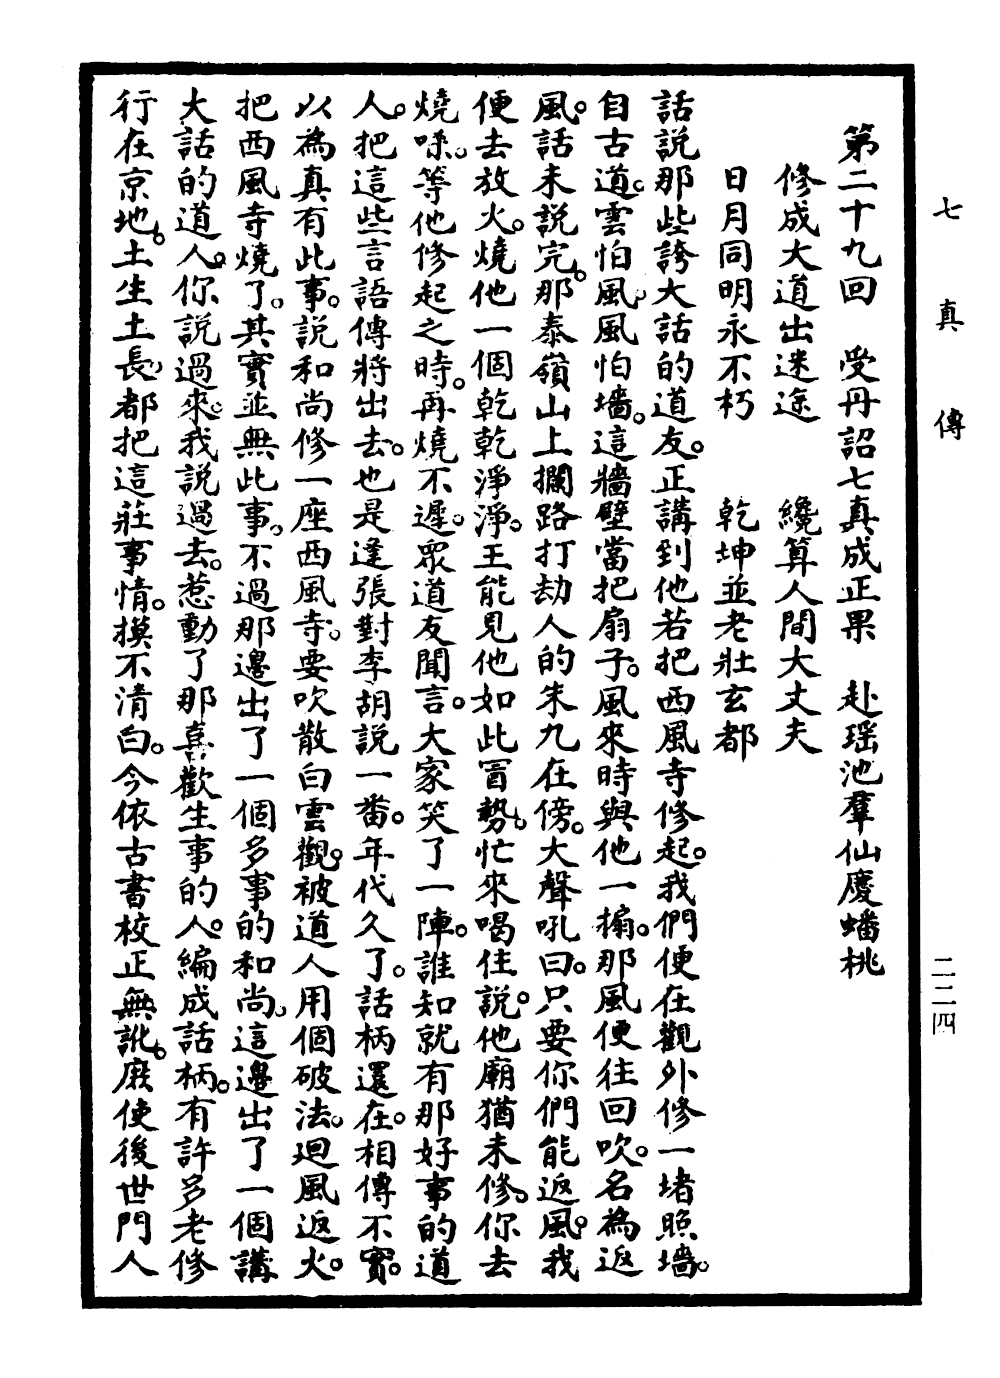 七真傳
二二四
第二十九回　受丹詔七真成正果　赴瑶池羣仙慶蟠桃
修成大道出迷途　纔算人間大丈夫
日月同明永不朽　乾坤並老壯玄都
話說那些誇大話的道友。正講到他若把西風寺修起。我們便在觀外修一堵照墻。
自古道。雲怕風。風怕墻。這牆壁當把扇子。風來時與他一搧。那風便往回吹。名為返
風。話未說完。那泰嶺山上攔路打劫人的朱九在傍。大聲吼曰。只要你們能返風。我
便去放火。燒他一個乾乾淨淨。王能見他如此冒勢。忙來喝住說。他廟猶未修。你去
燒啄。等他修起之時。再燒不遲。眾道友聞言。大家笑了一陣。誰知就有那好事的道
人。把這些言語傳將出去。也是逢張對李胡說一番。年代久了。話柄還在。相傳不實。
以為真有此事。說和尚修一座西風寺。要吹散白雲觀。被道人用個破法。迴風返火。
把西風寺燒了。其實並無此事。不過那邊出了一個多事的和尚。這邊出了一個講
大話的道人。你說過來。我說過去。惹動了那喜歡生事的人。編成話柄。有許多老修
行在京地。土生土長。都把這莊事情。摸不清白。今依古書校正無訛。庶使後世門人